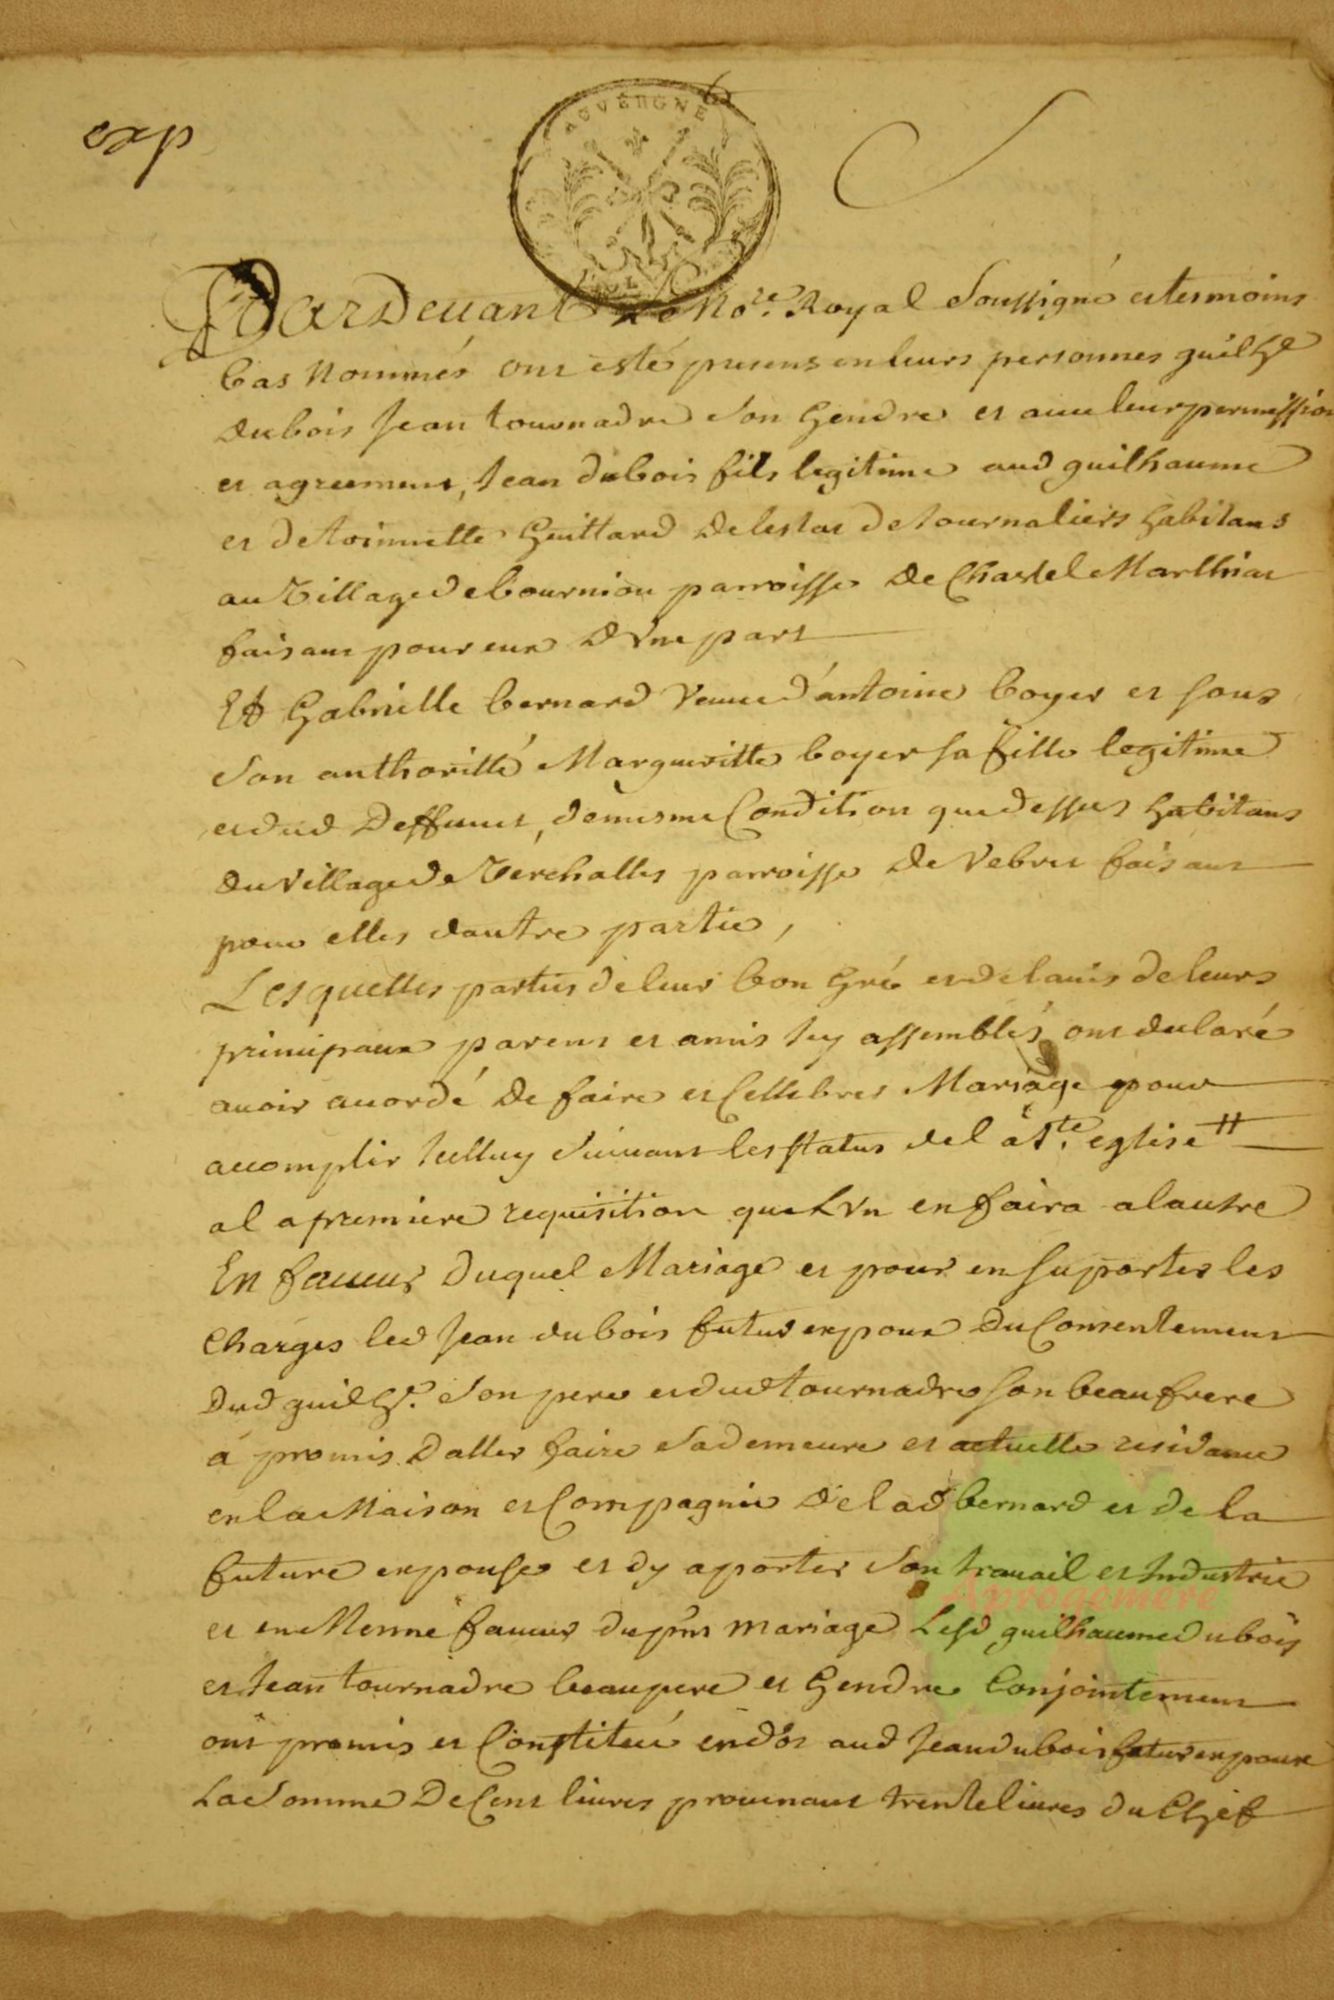 exp
AUVERGNE
Pardevant Le No.re Royal Soussigné et tesmoins
bas Nommés ont esté presens en leurs personnes guilhe
dubois Jean tournadre son Gendre et avec leur permission
et agreement, Jean dubois fils legitime aud guilhaume
et de toinnette Guittard de lestat de Journaliers habitans
au Village de bournion parroisse De Chastel Marlhiat
faisant pour eux D'Une part
Et Gabrielle bernard Veuve d'antoine boyer et sous
son authoritté Margueritte boyer sa fille legitime
et dud Deffunct, de mesme Condition que dessus habitans
du Village de Verchalles parroisse De Vebret faisant
pour elles dautre partie,
Lesquelles parties de leur bon Gré et de lavis de leurs
principaux parens et amis Icy assemblés ont declaré
avoir acordé De faire et Cellebrer Mariage pour
accomplir Icelluy suivant les status de la Ste. eglise
a la premiere requisition que Lvn en faira a lautre
En faveur Duquel Mariage et pour en suporter les
Charges led Jean dubois futur expoux Du Consentement
Dud guilhe. son pere et dud tournadre son beau frere
a promis Daller faire sa demeure et actuelle residance
en la Maison et Compagnie De lad bernard et de la
future expouse et dy aporter son travail et Industrie
et en Mesme faveur du pnt mariage Lesd guilhaume dubois
et Jean tournadre beaupere et Gendre Conjointement
ont promis et Constitué en dot aud Jean dubois futur expoux
La Somme De Cent livres provenant trente livres du Chef
Aprogemere